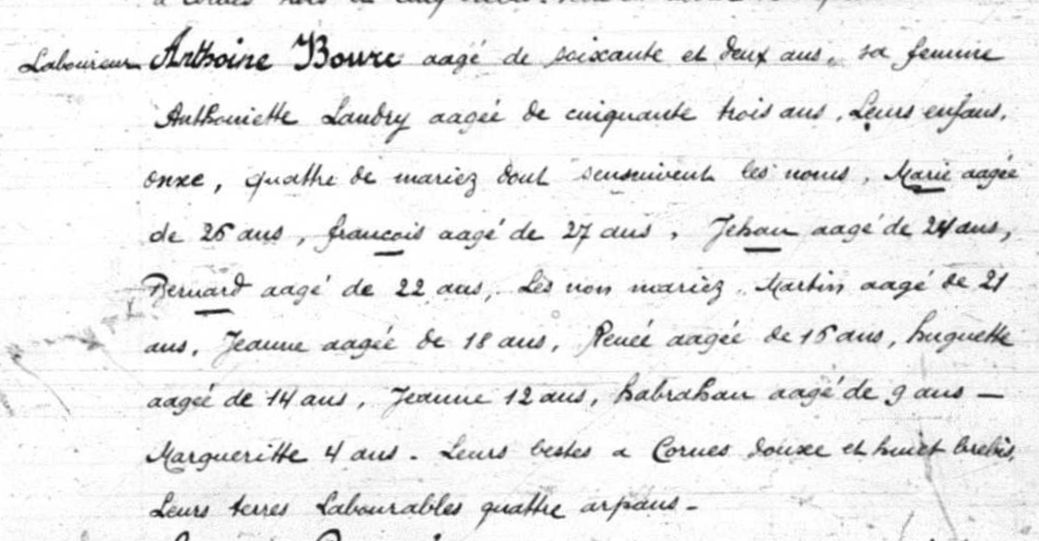 Laboureur Anthoine Bourc aagé de soixante et deux ans, sa femme
Anthoniette Landry aagée de cinquante trois ans, Leurs enfans,
onxe, quattre de mariez dont sensuivent les noms, Marie aagée
de 26 ans, françois aagé de 27 ans, Jehan aagé de 24 ans,
Bernard aagé de 22 ans, Les non mariez, Martin aagé de 21
ans, Jeanne aagée de 18 ans, Renée aagée de 16 ans, huguette
aagée de 14 ans, Jeanne 12 ans, habraham aagé de 9 ans —
Margueritte 4 ans - Leurs bestes a Cornes douxe et huict brebis,
Leurs terres Labourables quattre arpans -